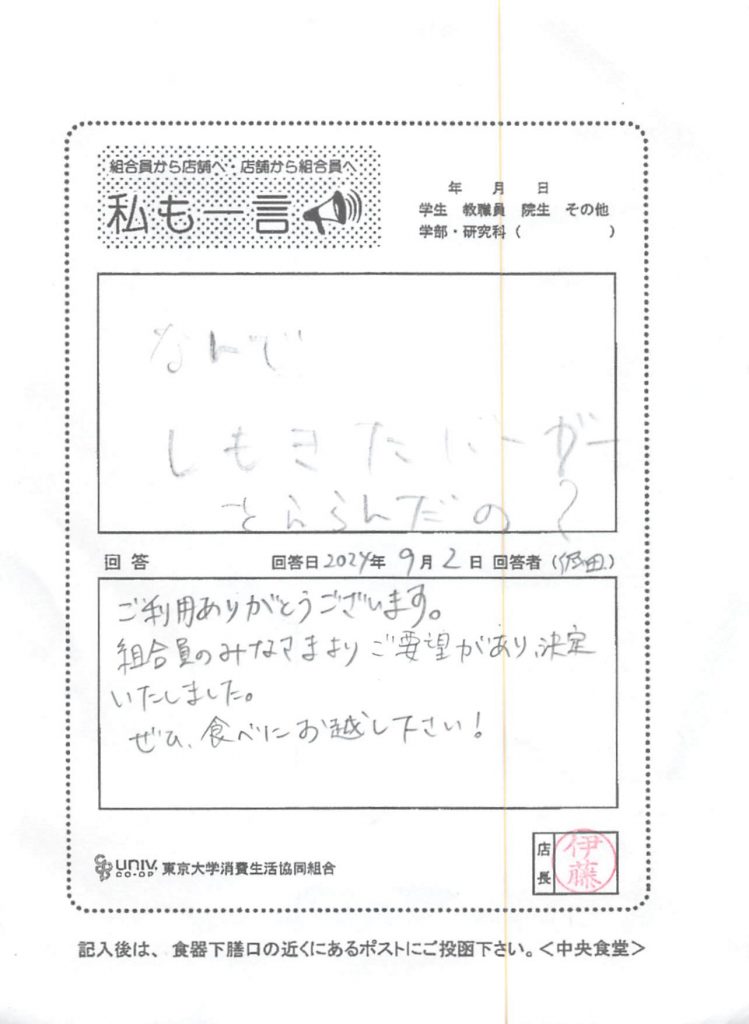 組合員から店舗へ・店舗から組合員へ
私も一言
年 月 日
学生 教職員 院生 その他
学部・研究科( )
なんで
しもきたバーガー
えらんだの?
回答 回答日2024年 9月2日 回答者(田)
ご利用ありがとうございます。
組合員のみなさまよりご要望があり、決定
いたしました。
ぜひ、食べにお越し下さい!
UNIV. CO-OP 東京大学消費生活協同組合
店長 伊藤
記入後は、食器下膳口の近くにあるポストにご投函下さい。<中央食堂>